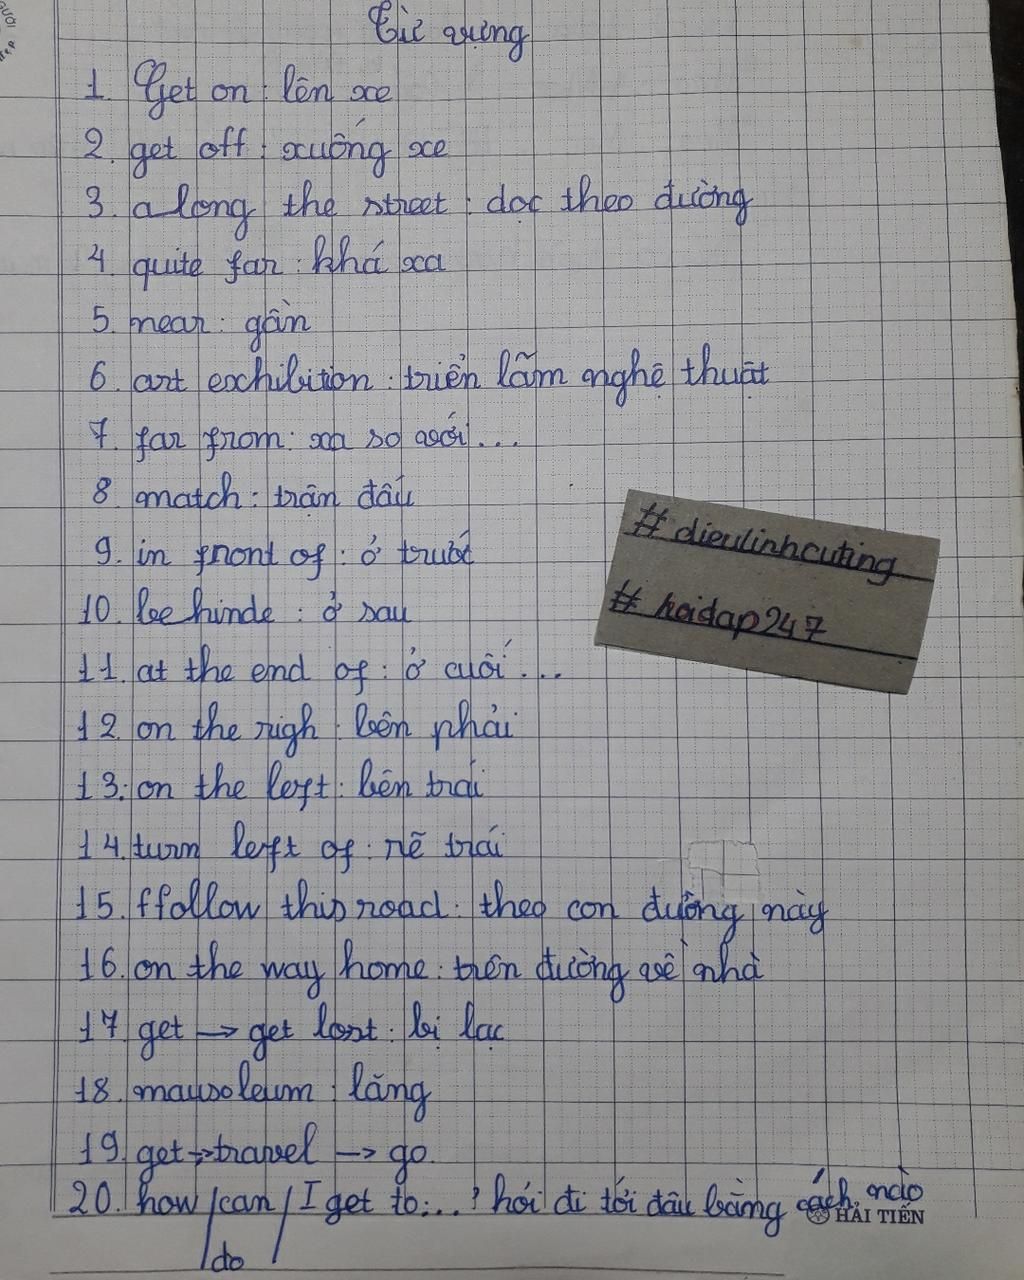 Từ vựng
1. Get on : lên xe
2. get off : xuống xe
3. along the street : dọc theo đường
4. quite far : khá xa
5. near : gần
6. art exhibition : triển lãm nghệ thuật
7. far from : xa so với...
8. match : trận đấu
9. in front of : ở trước
10. behinde : ở sau
11. at the end of : ở cuối...
12. on the righ : bên phải
13. on the left : bên trái
14. turn left of : rẽ trái
15. ffollow this road : theo con đường này
16. on the way home : trên đường về nhà
17. get → get lost : bị lạc
18. mausoleum : lăng
19. get → travel → go.
20. how / can / I get to:...? hỏi đi tới đâu bằng cách nào
do
# dieulinhcuting
# hoidap247
HẢI TIẾN